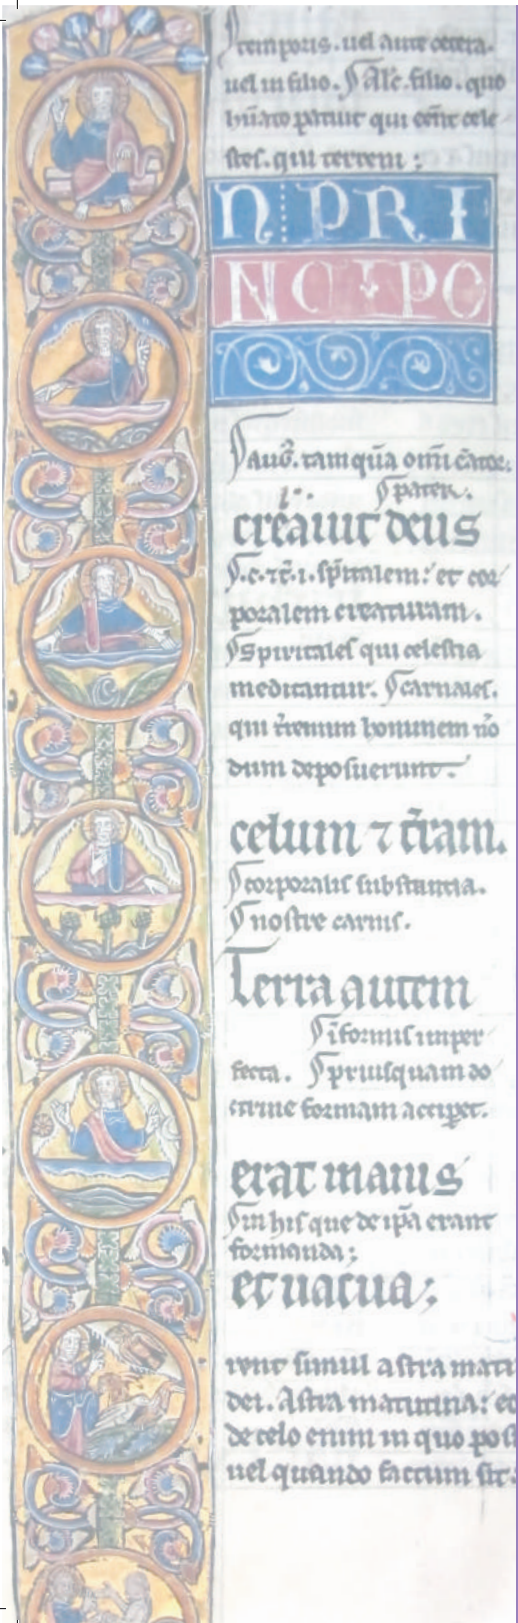 temporis. uel ante cetera.
uel in filio. Alr. filio. quo
patuit qui cele
stes. qui terreni;
N: PRI
NCIPO
Aug. tamquā om̄i
pater.
creauit deus
sp̄italem: et cor
poralem creaturam.
Spiritales qui celestia
meditantur. carnales.
qui t̄renum hominem nō
dum deposuerunt.
celum ⁊ t̄ram.
corporalis substantia.
nostre carnis.
Terra autem
īformis imper
fecta. priusquam do
ctrine formam acciperet.
erat inanis
in his que de ip̄a erant
formanda;
et uacua;
simul astra matu
dei. Astra matutina: et
de celo enim in quo pos
uel quando factum sit.